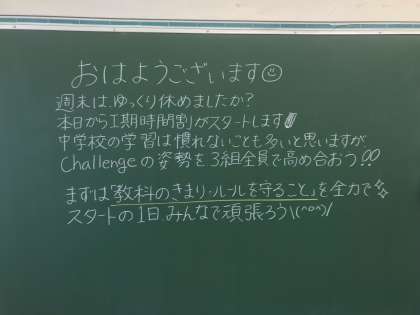 おはようございます☺
週末は、ゆっくり休めましたか?
本日からI期時間割がスタートします!!
中学校の学習は慣れないことも多いと思いますが
Challengeの姿勢を3組全員で高め合おう!!
まずは「教科のきまり・ルールを守ること」を全力で✨
スタートの1日、みんなで頑張ろう\(^o^)/